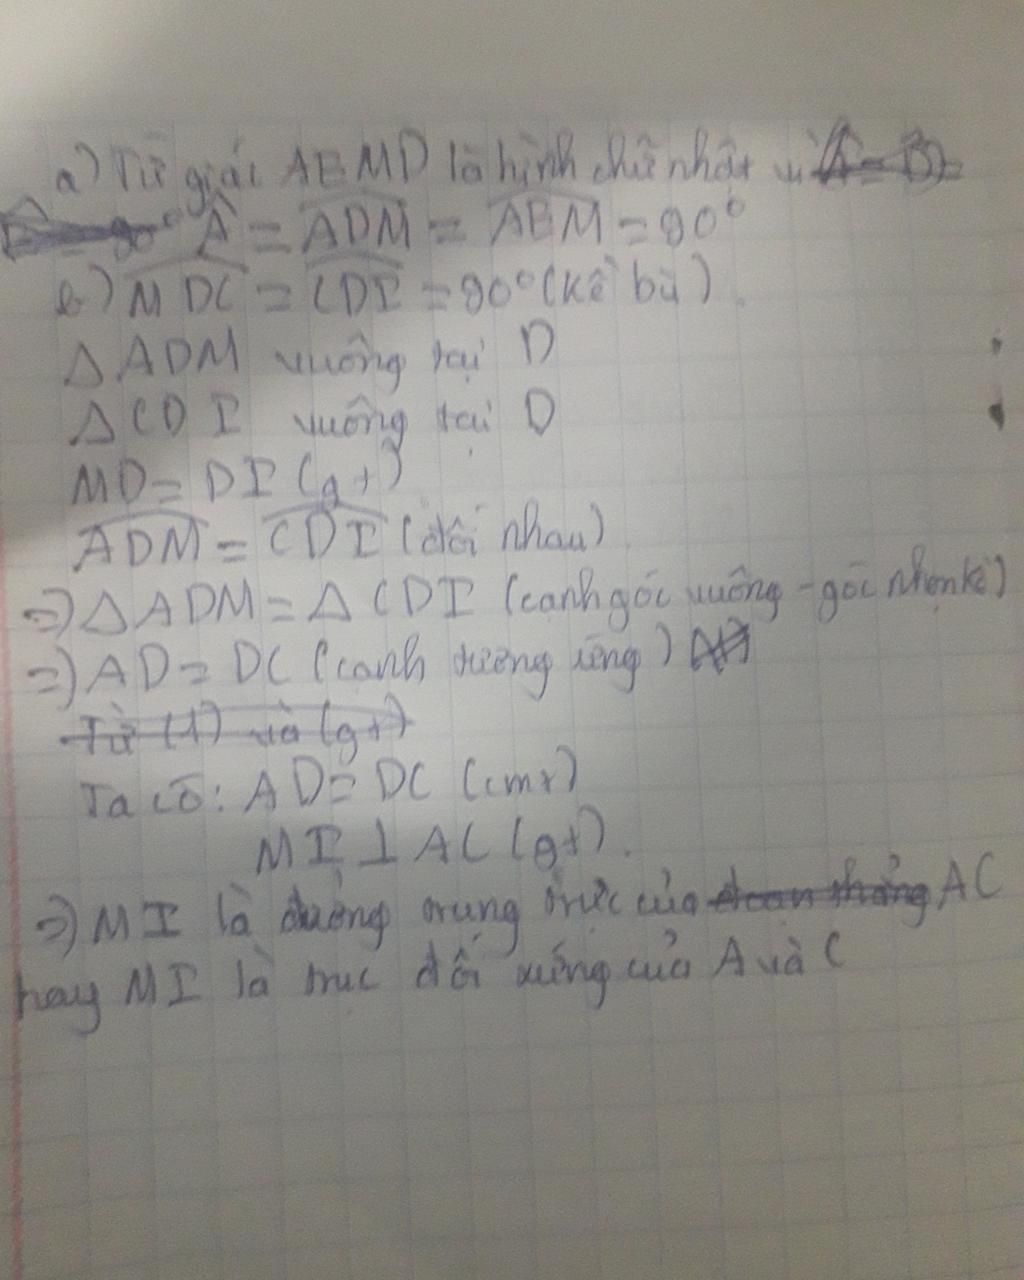 a) Tứ giác AEMD là hình chữ nhật vì
Â = ADM = AEM = 90°
b) MDC = CDI = 90° (kề bù).
Δ ADM vuông tại D
Δ CDI vuông tại D
MD = DI (gt)
ADM = CDI (đối nhau)
=> Δ ADM = Δ CDI (cạnh góc vuông - góc nhọn kề)
=> AD = DC (cạnh tương ứng)
Từ (1) và (gt)
Ta có: AD = DC (cmt)
MI ⊥ AC (gt).
=> MI là đường trung trực của đoạn thẳng AC
hay MI là trục đối xứng của A và C